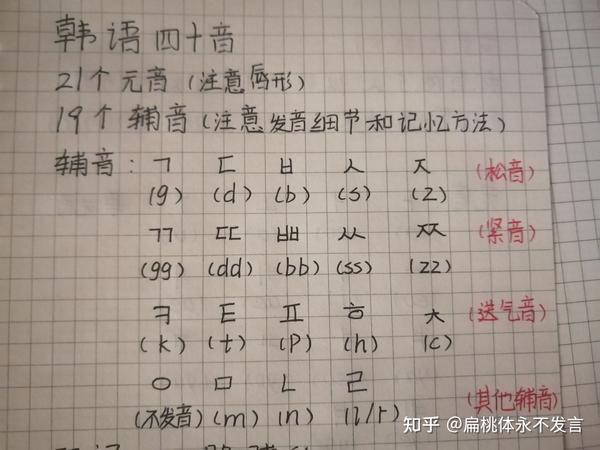 韩语四十音
21个元音(注意唇形)
19个辅音(注意发音细节和记忆方法)
辅音: ㄱ ㄷ ㅂ ㅅ ㅈ (松音)
(g) (d) (b) (s) (z)
ㄲ ㄸ ㅃ ㅆ ㅉ (紧音)
(gg) (dd) (bb) (ss) (zz)
ㅋ ㅌ ㅍ ㅎ ㅊ (送气音)
(k) (t) (p) (h) (c)
ㅇ ㅁ ㄴ ㄹ (其他辅音)
(不发音) (m) (n) (l/r)
知乎 @扁桃体永不发言